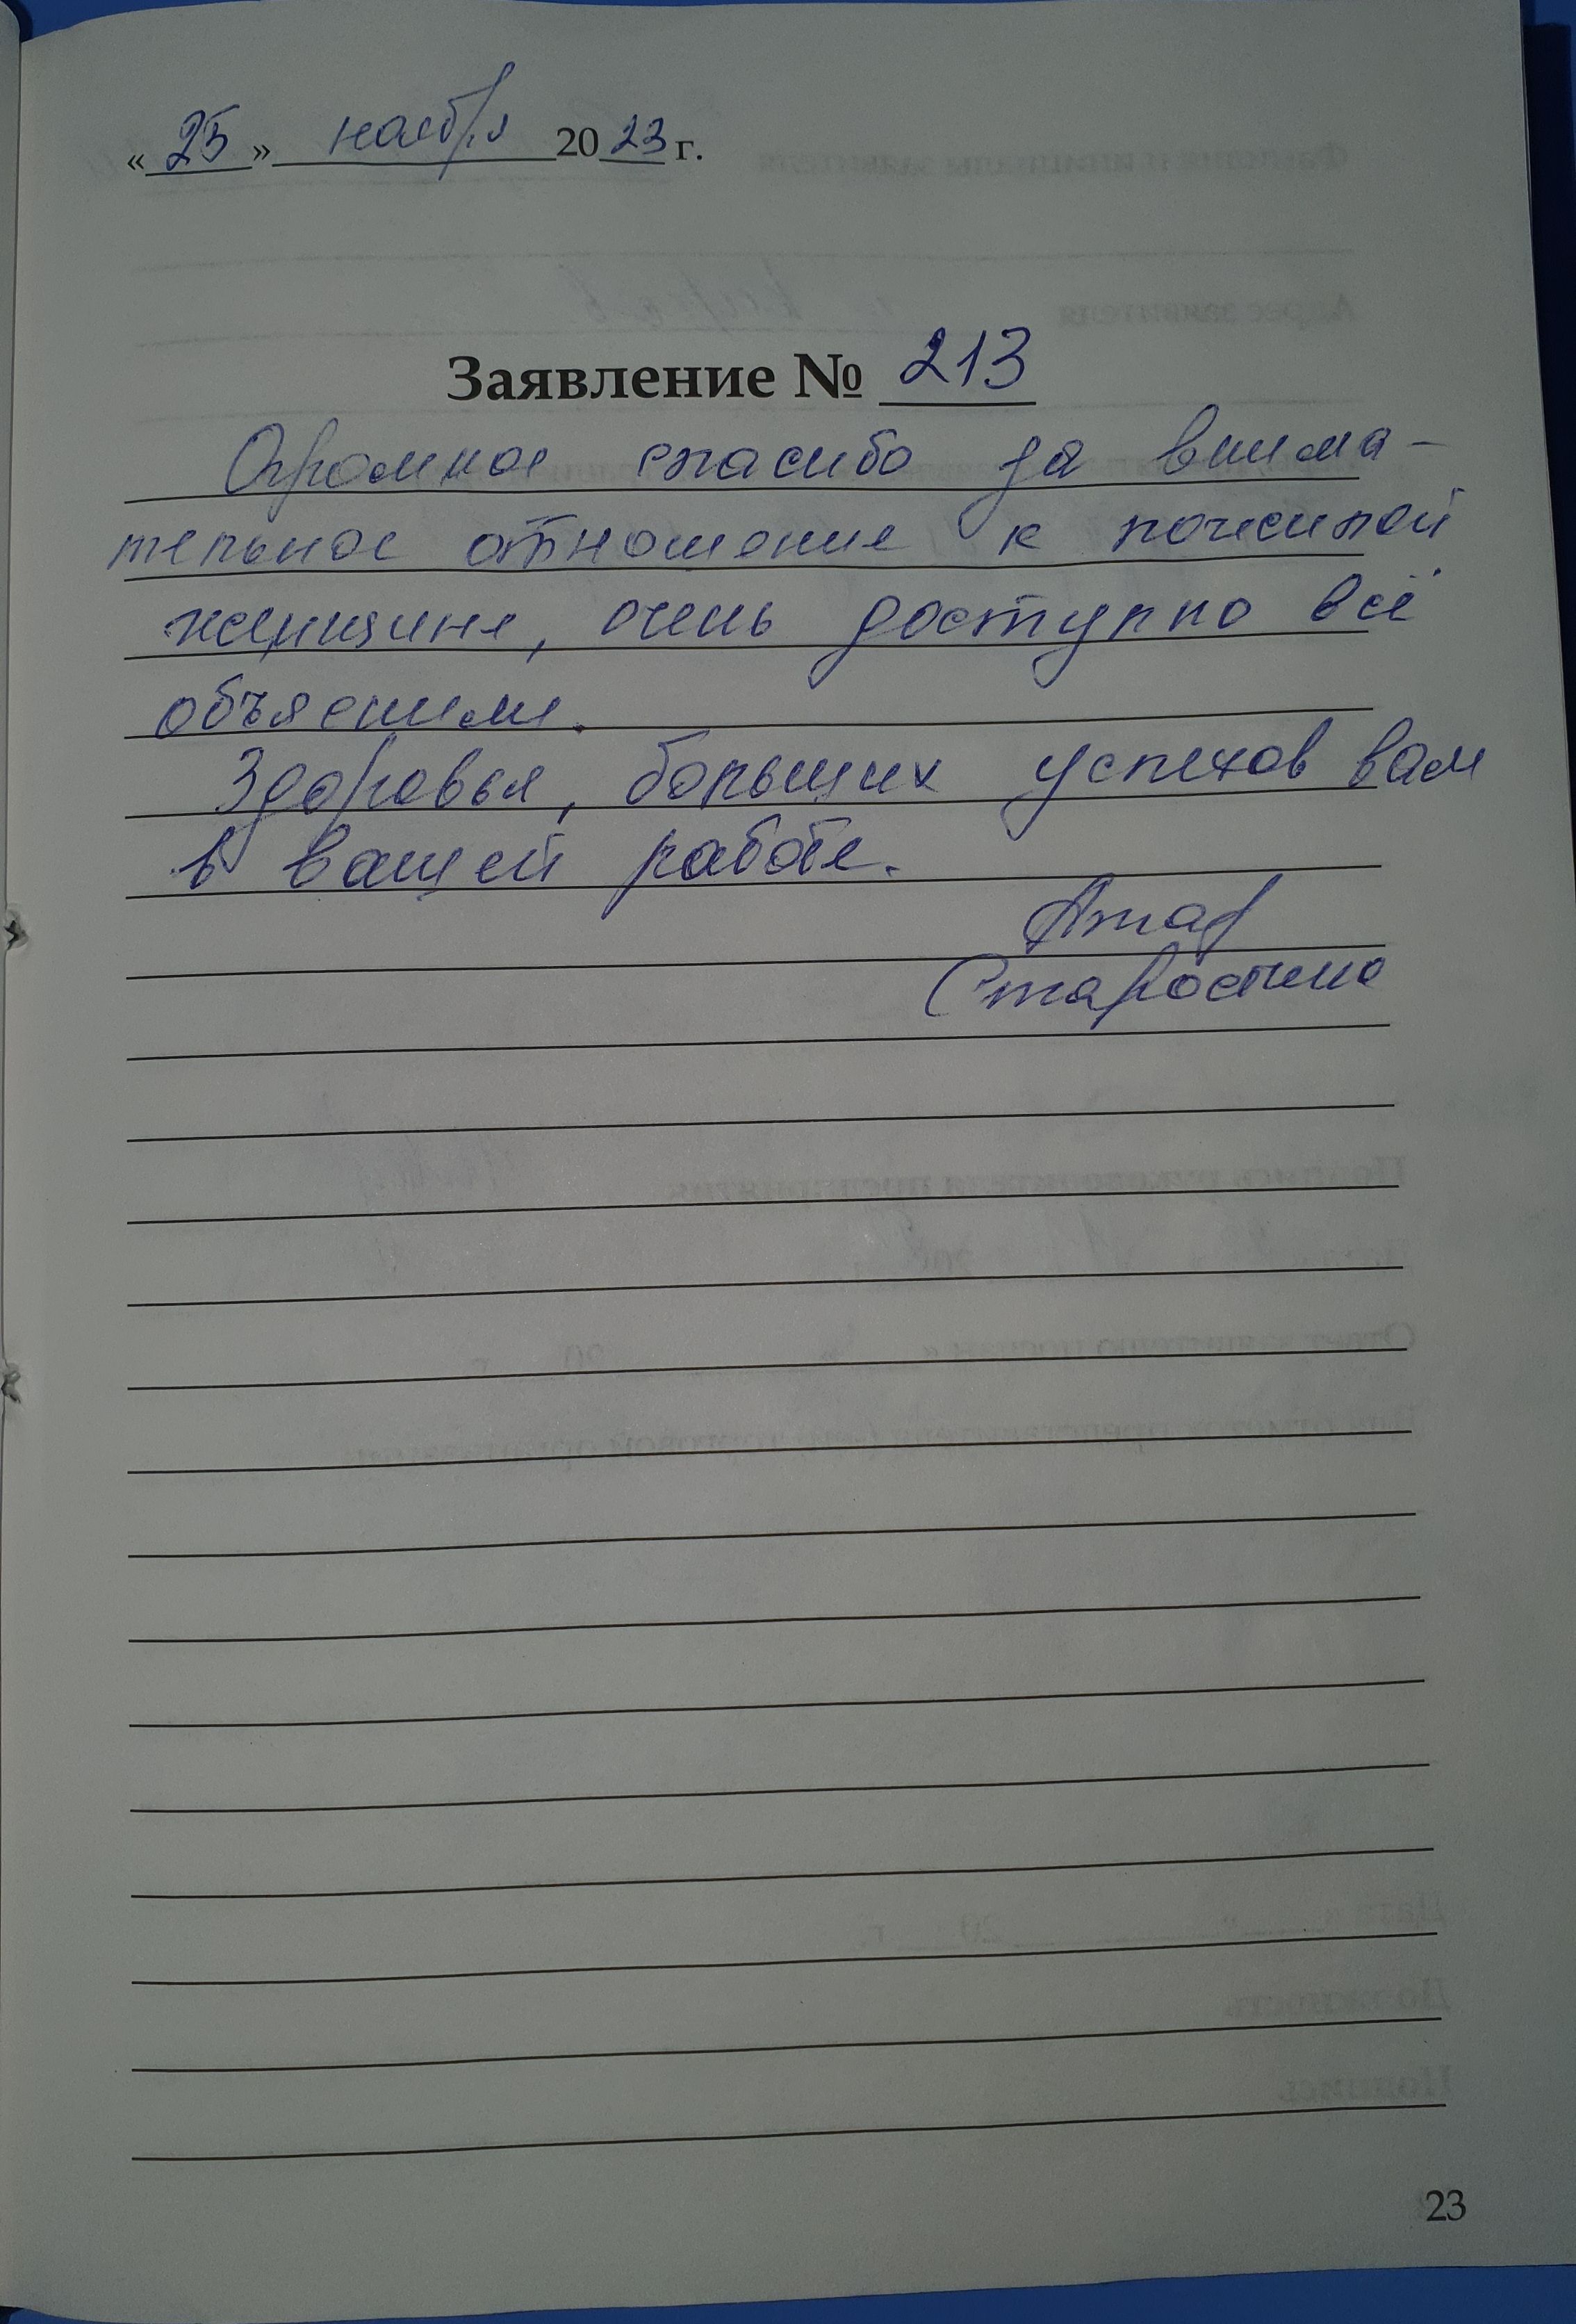 «25» ноября 2023 г.
Заявление № 213
Огромное спасибо за внима-
тельное отношение к пожилой
женщине, очень доступно всё
объяснили.
Здоровья, больших успехов вам
в вашей работе.
Старостина
23